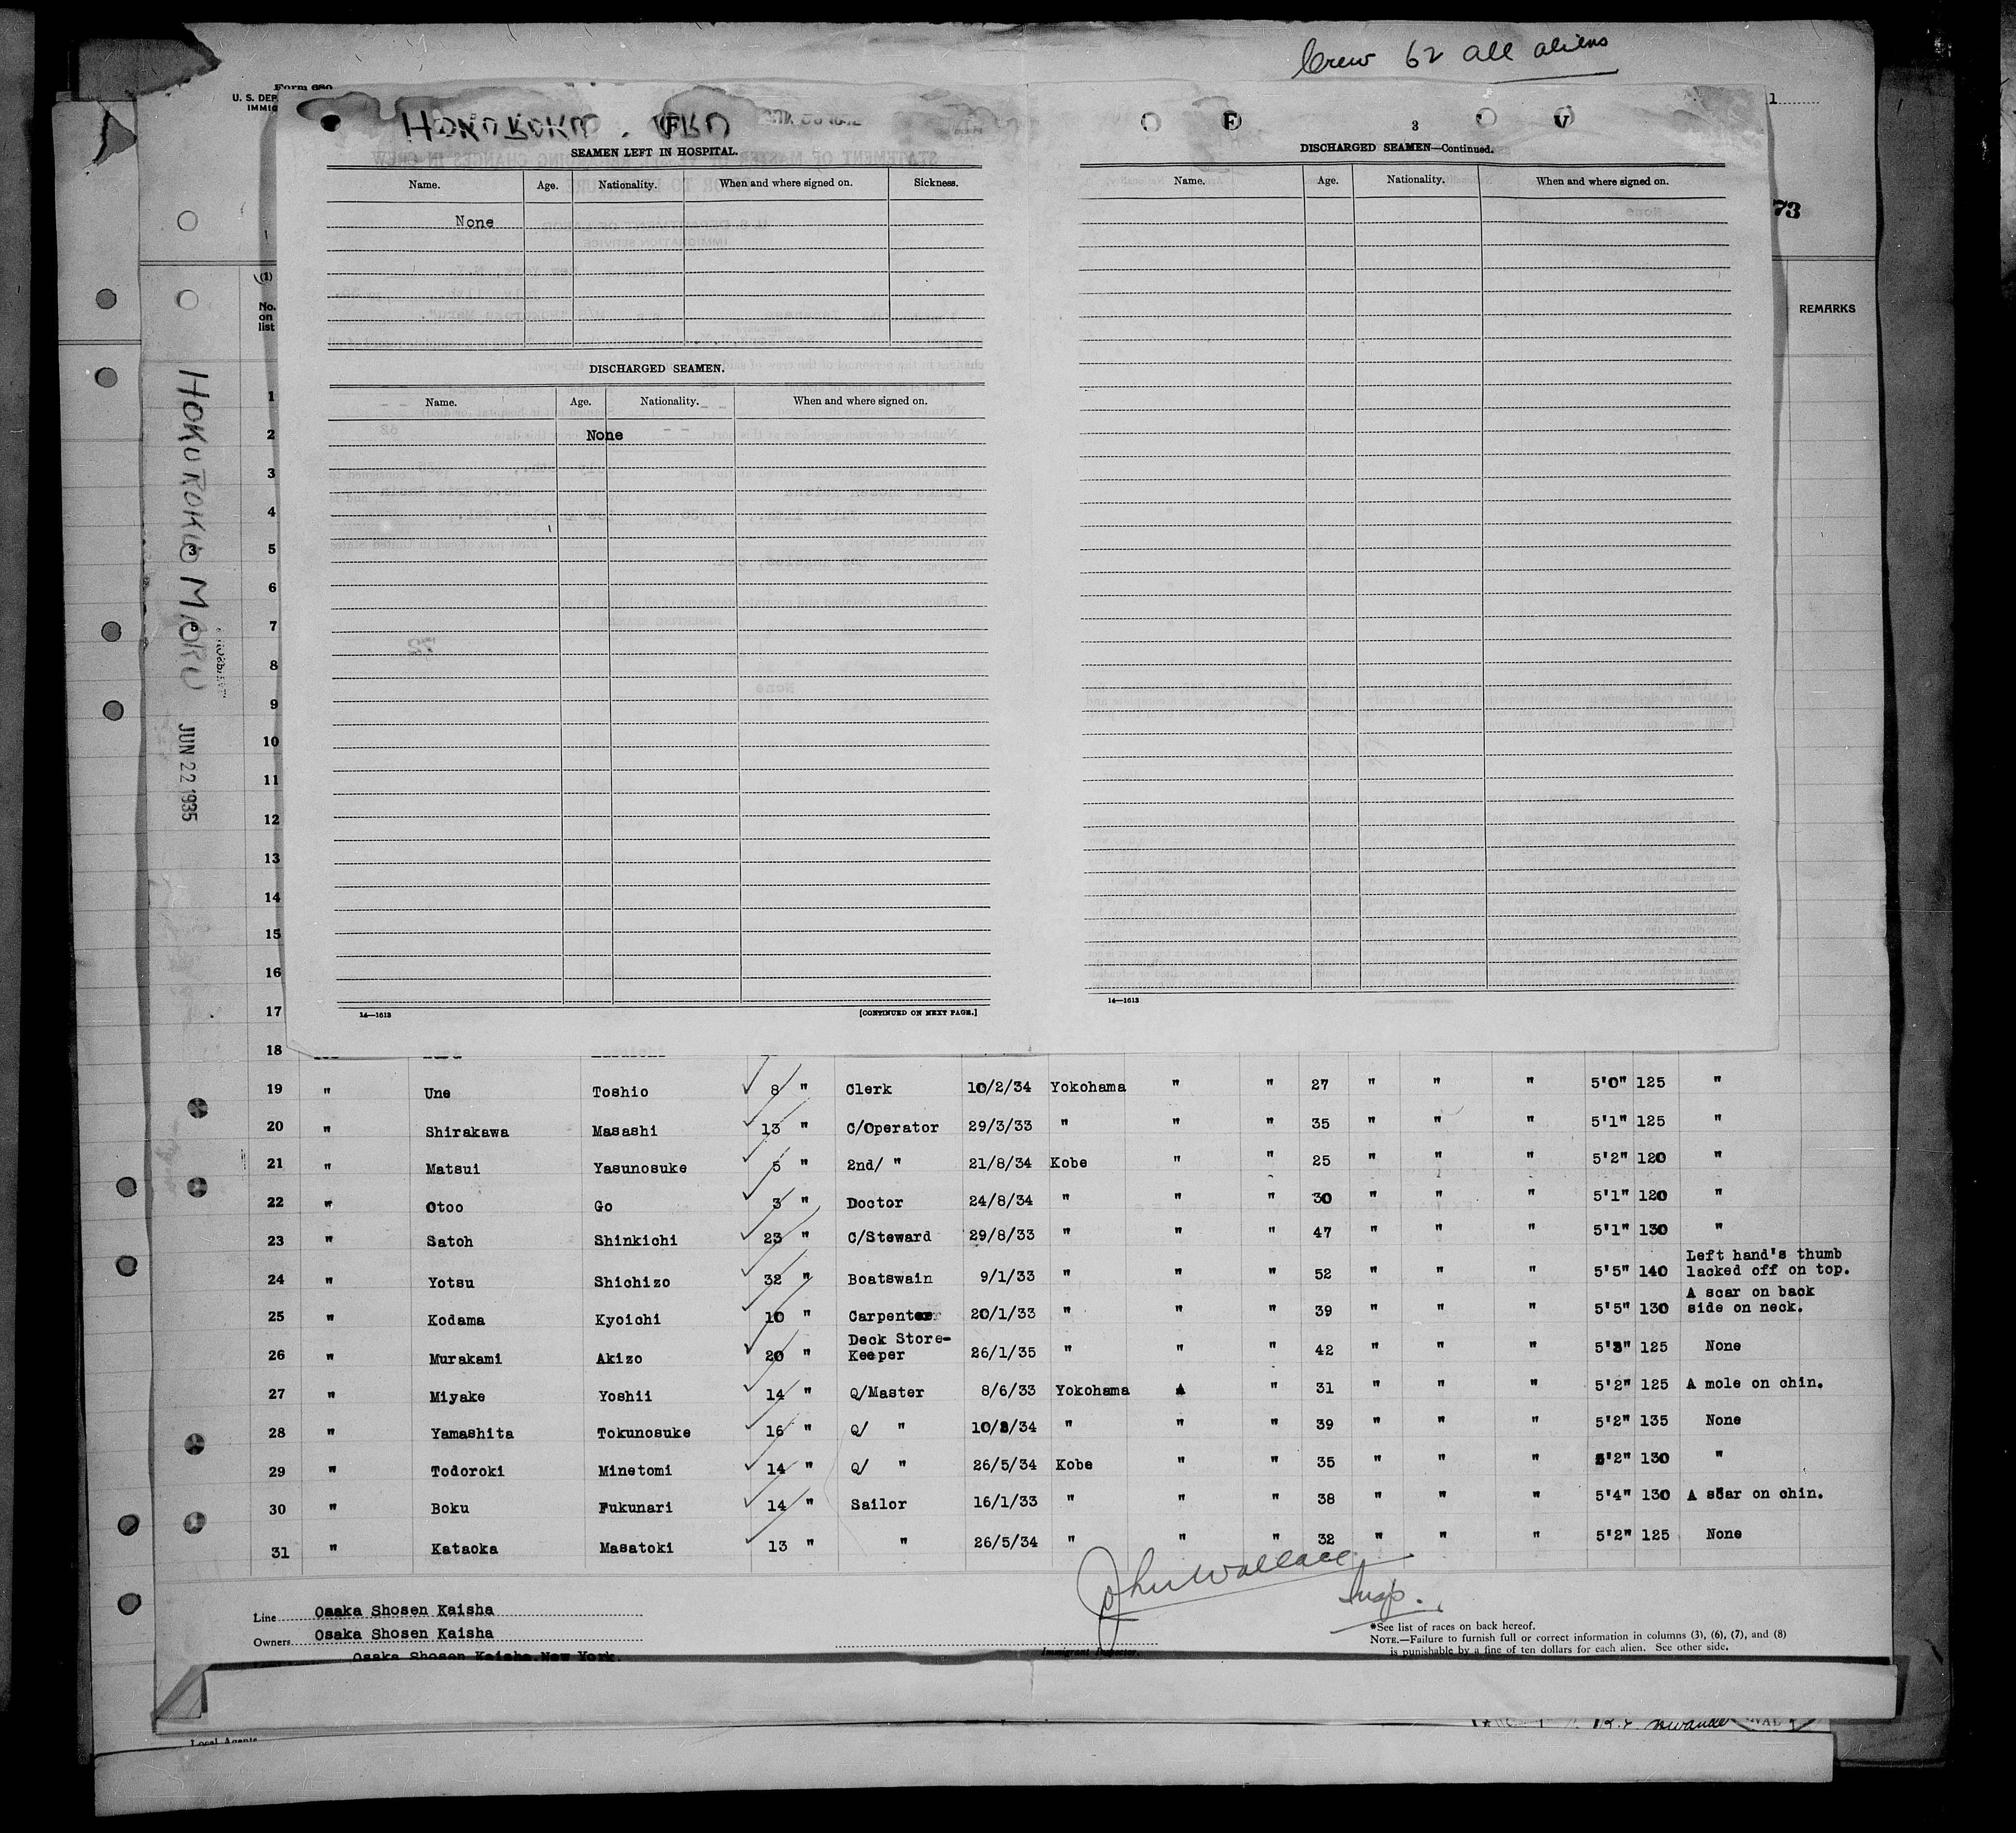 Crew 62 all aliens
Form 680
U. S. DEP
IMMIG
1
HOKUROKU MARU
SEAMEN LEFT IN HOSPITAL.
Name. Age. Nationality. When and where signed on. Sickness.
None
DISCHARGED SEAMEN.
Name. Age. Nationality. When and where signed on.
None
14—1613 [CONTINUED ON NEXT PAGE.]
3
DISCHARGED SEAMEN—Continued.
Name. Age. Nationality. When and where signed on.
14—1613
73
REMARKS
(1)
No. on list
HOKUROKU MARU JUN 22 1935
1
2
3
4
5
6
7
8
9
10
11
12
13
14
15
16
17
18
19 " Une Toshio 8 " Clerk 10/2/34 Yokohama " " 27 " " " 5'0" 125 "
20 " Shirakawa Masashi 13 " C/Operator 29/3/33 " " " 35 " " " 5'1" 125 "
21 " Matsui Yasunosuke 5 " 2nd/ " 21/8/34 Kobe " " 25 " " " 5'2" 120 "
22 " Otoo Go 3 " Doctor 24/8/34 " " " 30 " " " 5'1" 120 "
23 " Satoh Shinkichi 23 " C/Steward 29/8/33 " " " 47 " " " 5'1" 130 "
24 " Yotsu Shichizo 32 " Boatswain 9/1/33 " " " 52 " " " 5'5" 140 Left hand's thumb lacked off on top.
25 " Kodama Kyoichi 10 " Carpenter 20/1/33 " " " 39 " " " 5'5" 130 A scar on back side on neck.
26 " Murakami Akizo 20 " Deck Store-Keeper 26/1/35 " " " 42 " " " 125 None
27 " Miyake Yoshii 14 " Q/Master 8/6/33 Yokohama " " 31 " " " 5'2" 125 A mole on chin.
28 " Yamashita Tokunosuke 16 " Q/ " " " " 39 " " " 5'2" 135 None
29 " Todoroki Minetomi 14 " Q/ " 26/5/34 Kobe " " 35 " " " 5'2" 130 "
30 " Boku Fukunari 14 " Sailor 16/1/33 " " " 38 " " " 5'4" 130 A scar on chin.
31 " Kataoka Masatoki 13 " " 26/5/34 " " " 32 " " " 5'2" 125 None
John Wallace
Insp.
Line Osaka Shosen Kaisha
Owners Osaka Shosen Kaisha
Osaka Shosen Kaisha, New York.
Immigrant Inspector.
*See list of races on back hereof.
NOTE.—Failure to furnish full or correct information in columns (3), (6), (7), and (8)
is punishable by a fine of ten dollars for each alien. See other side.
Local Agents